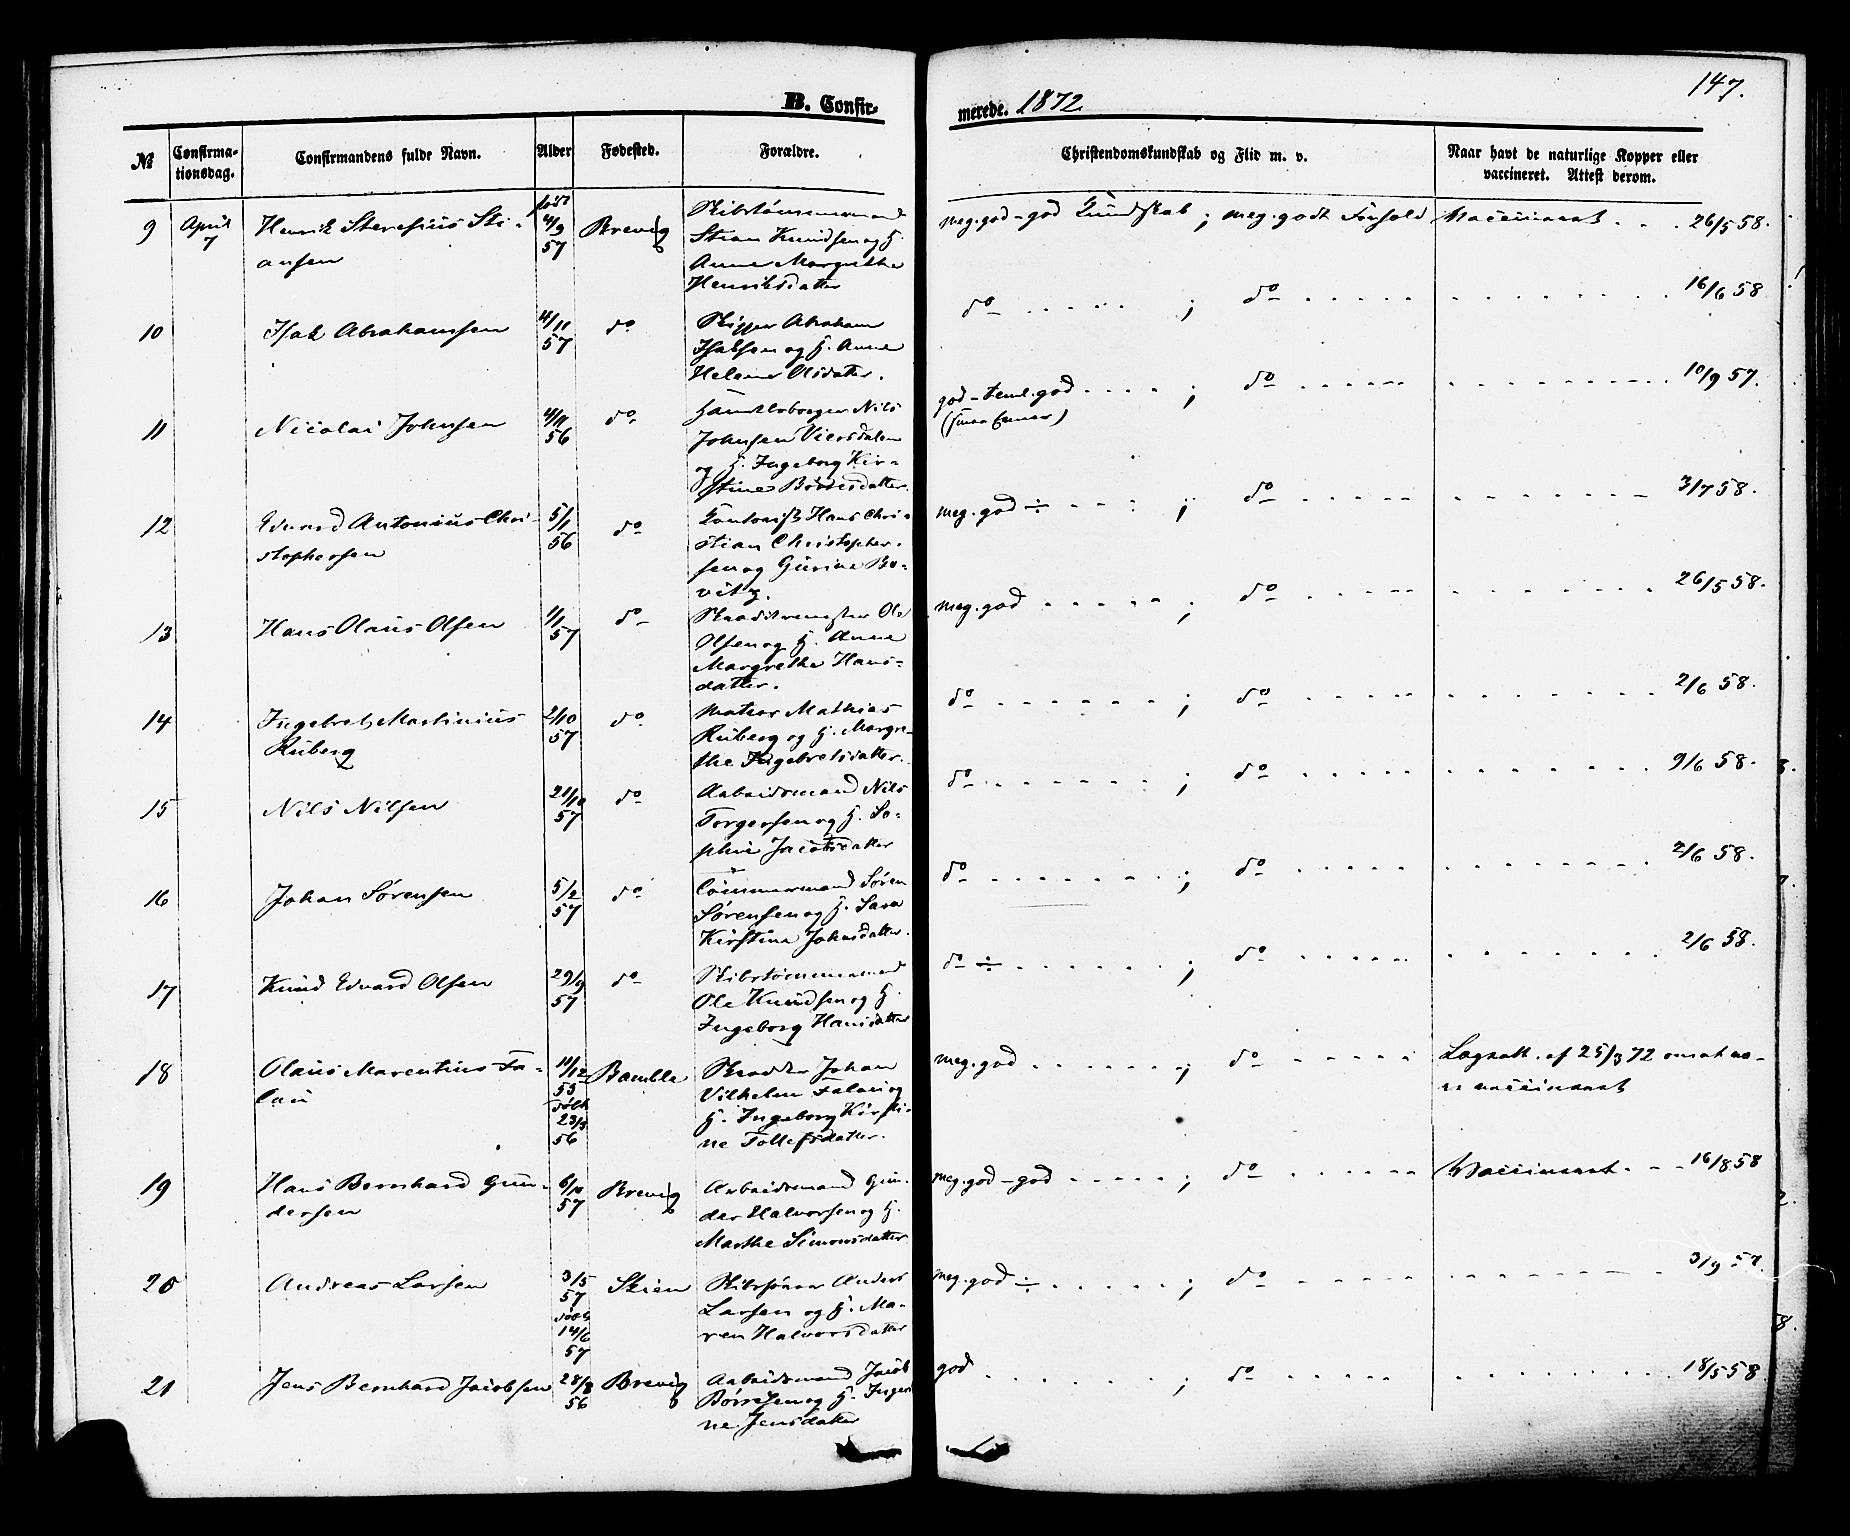 147.
B. Confir-
merede. 1872
№
Confirma-
tionsdag.
Confirmandens fulde Navn.
Alder
Fødested.
Forældre.
Christendomskundskab og Flid m. v.
Naar havt de naturlige Kopper eller
vaccineret. Attest derom.
9
April
7
Henrik Sti-
ansen
født
4/9
57
Brevig
Skibstømmermand
Stian Knudsen og H.
Anne Margrethe
Henriksdatter
meg. god - god Kundskab ; meg. godt Forhold
Vaccineret . . . 26/5 58.
10
Isak Abrahamsen
4/11
57
do
Skipper Abraham
Isaksen og H. Anne
Helene Olsdatter.
do ; do
16/6 58
11
Nicolai Johnsen
4/11
56
do
Handelsborger Nils
Johnsen Viersdalen
og H. Ingeborg Kir-
stine Børresdatter.
god - teml. god ; do
10/9 57.
12
Edvard Antonius Chri-
stophersen
5/1
56
do
Contorist Hans Chri-
stian Christopher-
sen og Gurine Bo-
vitz.
meg. god ÷ ; do
3/7 58.
13
Hans Olaus Olsen
1/1
57
do
Ole
Olsen og H. Anne
Margrethe Hans-
datter.
meg. god ; do
26/5 58.
14
Ingebret Martinius
Ruberg
2/10
57
do
Matros Mathias
Ruberg og H. Margre-
the Ingebretsdatter.
do ; do
2/6 58.
15
Nils Nilsen
21/10
57
do
Arbeidsmand Nils
Torgersen og H. So-
phie Jacobsdatter
do ; do
9/6 58.
16
Johan Sørensen
5/2
57
do
Tømmermand Søren
Sørensen og H. Sara
Kirstine Johnsdatter.
do ; do
2/6 58.
17
Knud Edvard Olsen
29/9
57
do
Skibstømmermand
Ole Knudsen og H.
Ingeborg Hansdatter
do ÷ ; do
2/6 58.
18
Olaus Marentius Fa-
lau
11/12
55
døbt
23/3
56
Bamble
Skrædder Johan
Vilhelm Falau og
H. Ingeborg Kirsti-
ne Tollefsdatter.
meg. god ; do
Lægeatt. af 25/3 72 om at væ-
re vaccineret
19
Hans Bernhard Gun-
dersen
6/10
57
Brevig
Arbeidsmand Gun-
der Halvorsen og H.
Marthe Simonsdatter
meg. god - god ; do
Vaccineret . - - 16/8 58
20
Andreas Larsen
3/5
57
døbt
14/6
57
Skien
Anders
Larsen og H. Ma-
ren Halvorsdatter
meg. god ÷ ; do
3/9 57.
21
Jens Bernhard Jacobsen
28/8
56
Brevig
Arbeidsmand Jacob
Børresen og H. Inger-
ne Jensdatter
god ; do
18/5 58